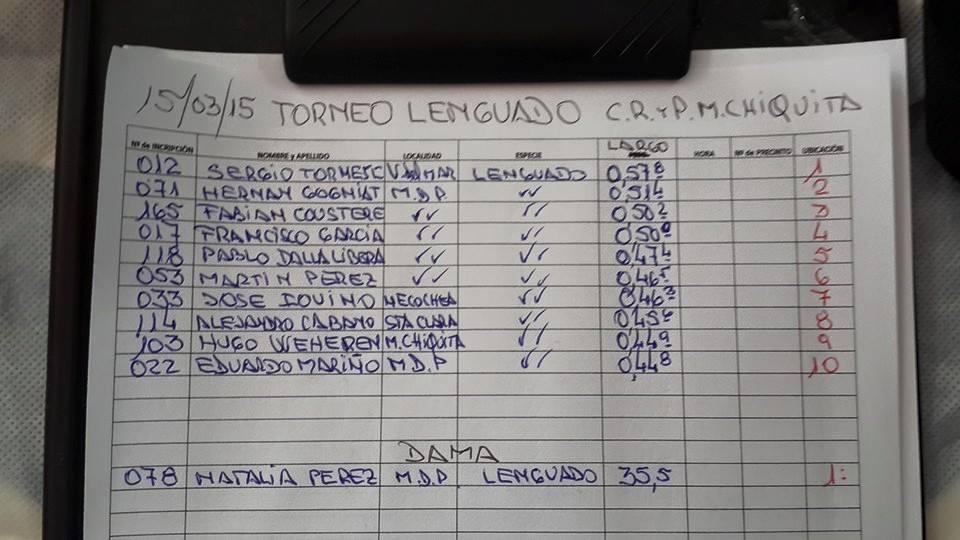 15/03/15 TORNEO LENGUADO C.R.Y P.M.CHIQUITA
Nº de INCRIPCIÓN NOMBRE y APELLIDO LOCALIDAD ESPECIE LARGO HORA Nº de PRECINTO UBICACIÓN
012 SERGIO LENGUADO 0,578 1
071 HERNAN M.D.P. √√ 0,514 2
165 FABIAN COUSTERE √√ √√ 0,502 3
017 FRANCISCO GARCIA √√ √√ 0,500 4
118 PABLO DALLALIBERA √√ √√ 0,474 5
053 MARTIN PEREZ √√ √√ 0,465 6
033 JOSE IOVINO NECOCHEA √√ 0,463 7
114 ALEJANDRO STA CLARA √√ 8
103 HUGO M.CHIQUITA √√ 0,449 9
022 EDUARDO MARIÑO M.D.P √√ 0,448 10
DAMA
078 NATALIA PEREZ M.D.P. LENGUADO 35,5 1: